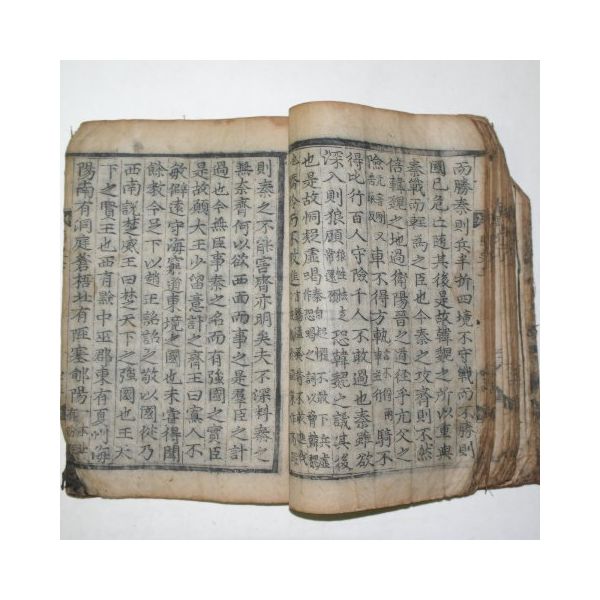 而勝秦則兵半折四境不守戰而不勝則
國已危亡隨其後是故韓魏之所以重與
秦戰而輕爲之臣也今秦之攻齊則不然
倍韓魏之地過衛陽晉之道徑乎亢父之
險車不得方軌騎不
得比行百人守險千人不敢過也秦雖欲
深入則狼顧狼性怯走常還顧恐韓魏之議其後
也是故恫疑虛喝
矜而不敢進
則秦之不能害齊亦明矣夫不深料秦之
無奈齊何以欲西面而事之是羣臣之計
過也今無臣事秦之名而有強國之實臣
是故願大王少留意計之齊王曰寡人不
敏僻遠守海窮道東境之國也未嘗得聞
餘教今足下以趙王詔詔之敬以國從乃
西南說楚威王曰楚天下之強國也王天
下之賢王也西有黔中巫郡東有夏州海
陽南有洞庭蒼梧北有陘塞郇陽